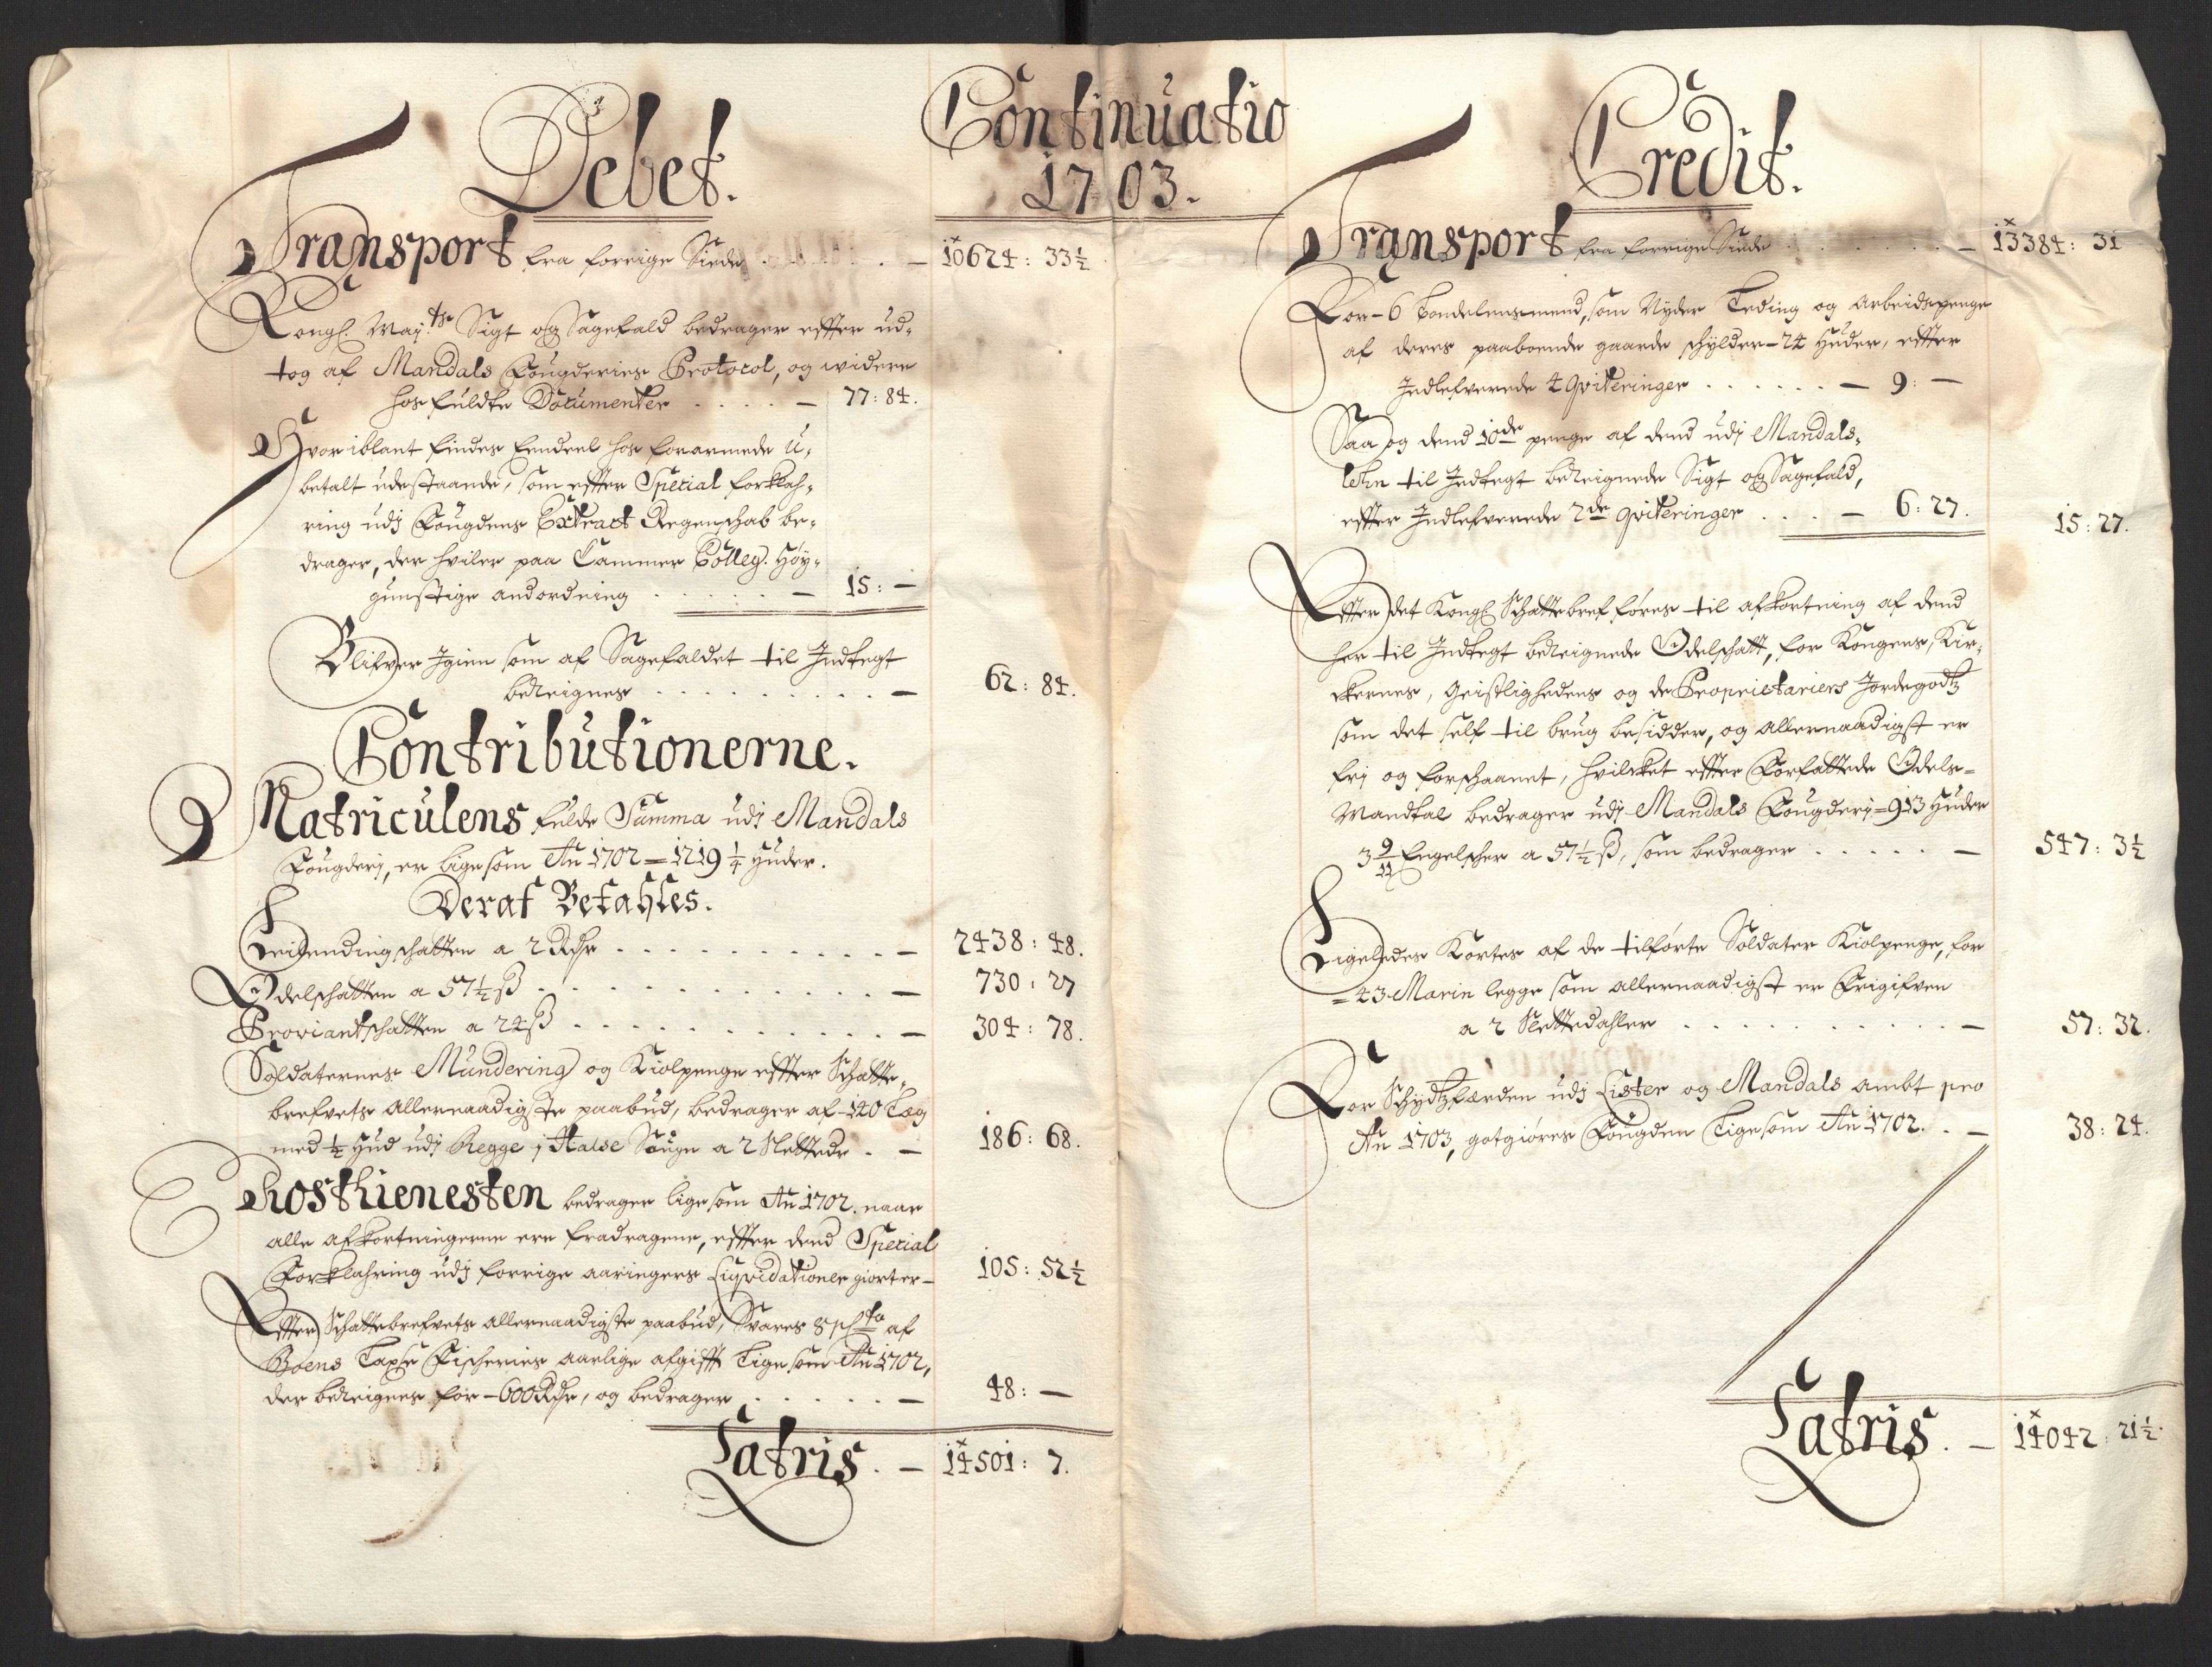 Continuatio
1703.
Debet.
Transport fra forrige Siide . . . — 10624: 33½
Kongl. May.ts Sigt og Sagefald bedrager effter ud-
tog af Mandals Fougderies Protocol, og widere
hos fuldte Documenter . . . . — 77: 84.
Hvor iblant findes Eendeel hos forarmede u-
betalt udestaaende, som effter Special forklah-
ring udj Fougdens Extract Regenschab be-
drager, der hviler paa Cammer Colleg. Høy-
gunstige andordning . . . . . — 15: —
Blifver Igien som af Sagefaldet til Indtegt
beReignes . . . . . . . . . — 62: 84.
Contributionerne.
Matriculens fulde Summa udi Mandals
Fougderj, er lige som Ao 1702 — 1219¼ Huder.
Deraf Betahles.
Leilendingschatten a 2 Rdr . . . . . . . . . — 2438: 48.
Odelschatten a 57½ β . . . . . . . . . . . — 730: 27
Proviantschatten a 24 β . . . . . . . . . . — 304: 78.
Soldaternes Mundering og Kiolpenge effter Schatte-
brefvets allernaadigste paabud, bedrager af 140 Læg
med ½ Hud udj Regge i Halse Sougn a 2 Slettedr . — 186: 68.
Rosthienesten bedrager lige som Ao 1702. naar
alle afkortningerne ere fradragene, effter dend Special
Forklahring udj forrige aaringers Liqvidationer giort er — 105: 52½
Effter Schattebrefvets allernaadigste paabud, Svares 8 pCto af
Boens Laxse Fischeries aarlige afgifft Lige som Ao 1702,
der beReignes for — 600 Rdr, og bedrager . . . . . — 48: —
Latris. — 14501: 7.
Credit.
Transport fra forrige Siide . . . . . . — 13384: 31
For — 6 Bondelensmend, som Nyder Leding og Arbeidspenge
af deres paaboende gaarde schylder — 24 Huder, effter
Indlefverede 4 Qviteringer . . . . . . — 9: —
Saa og dend 10de penge af dend udj Mandals-
lehn til Indtegt beReignede Sigt og Sagefald,
effter Indlefverede 2de qviteringer . . . — 6: 27. 15: 27.
Effter det Kongl Schattebref føres til afkortning af dend
her til Indtegt beReignede Odelschatt, for Kongens, Kir-
ckernes, Geistlighedens og de Proprietariers Jordegodtz
som det self til brug besidder, og allernaadigst er
frj og forschaanet, hvilcket effter Forfattede Odels-
Mandtal bedrager udj Mandals Fougderj = 913 Huder
3 9/11 Engelscher a 57½ β, som bedrager . . . . . — 547: 3½
Ligeledes Kortes af de tilførte Soldater Kiolpenge, for
= 43 Marin legge som allernaadigst er Frigifven
a 2 Slettedahler . . . . . . . . . . — 57: 32.
For Schydtzfærden udj Lister og Mandals ambt pro
Ao 1703, gotgiøres Fougden Lige som Ao 1702. . — 38: 24.
Latris. — 14042: 21½